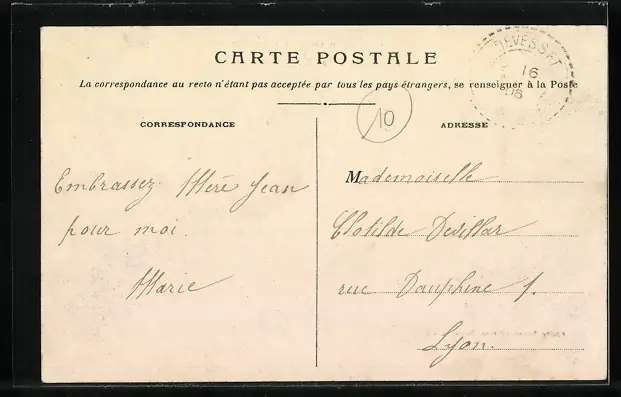 CARTE POSTALE
La correspondance au recto n'étant pas acceptée par tous les pays étrangers, se renseigner à la Poste
DEVESSET
16
06
10
CORRESPONDANCE
ADRESSE
Embrassez Mère Jean
pour moi.
Marie
Mademoiselle
Clotilde Devillar
rue Dauphine 1.
Lyon.